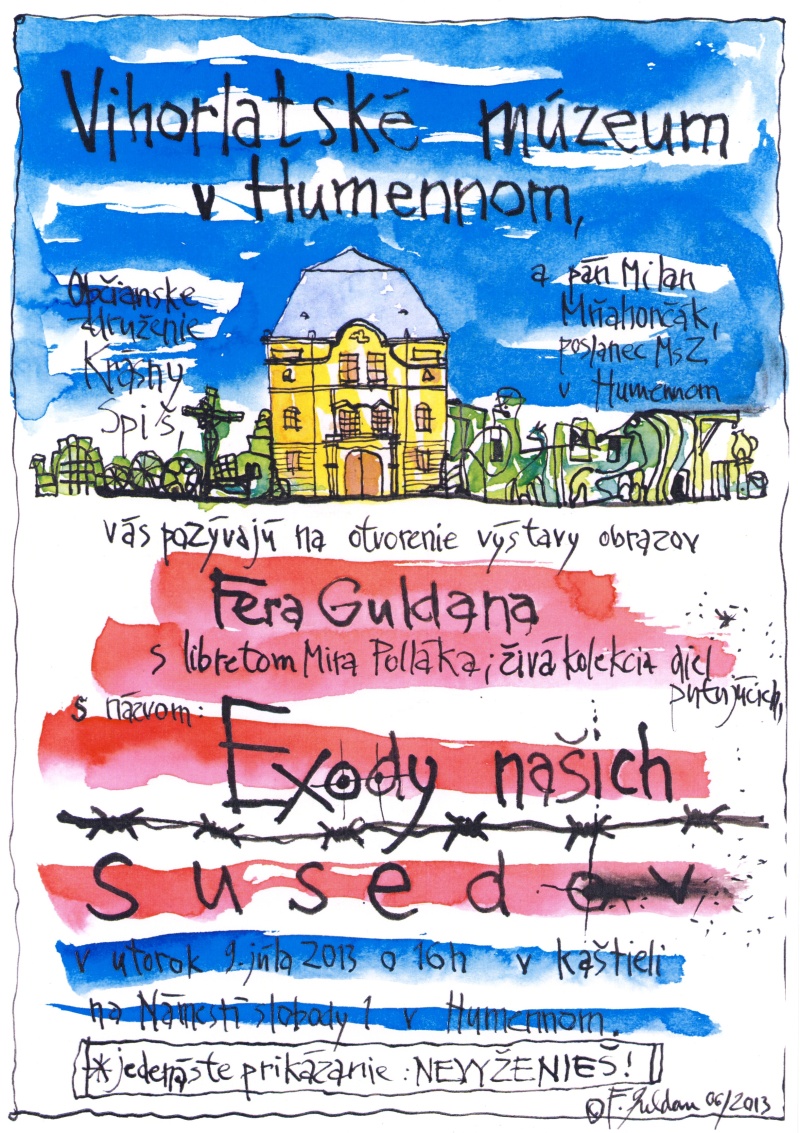 Vihorlatské múzeum
v Humennom,
Občianske
združenie
Krásny
Spiš,
a pán Milan
Mňahončák,
poslanec MsZ
v Humennom
vás pozývajú na otvorenie výstavy obrazov
Fera Guldana
s libretom Mira Polláka; živá kolekcia diel
putujúcich,
s názvom:
Exody našich
susedov
v utorok 9. júla 2013 o 16h v kaštieli
na Námestí slobody 1 v Humennom.
*jedenáste prikázanie: NEVYŽENIEŠ!
© F. Guldan 06/2013